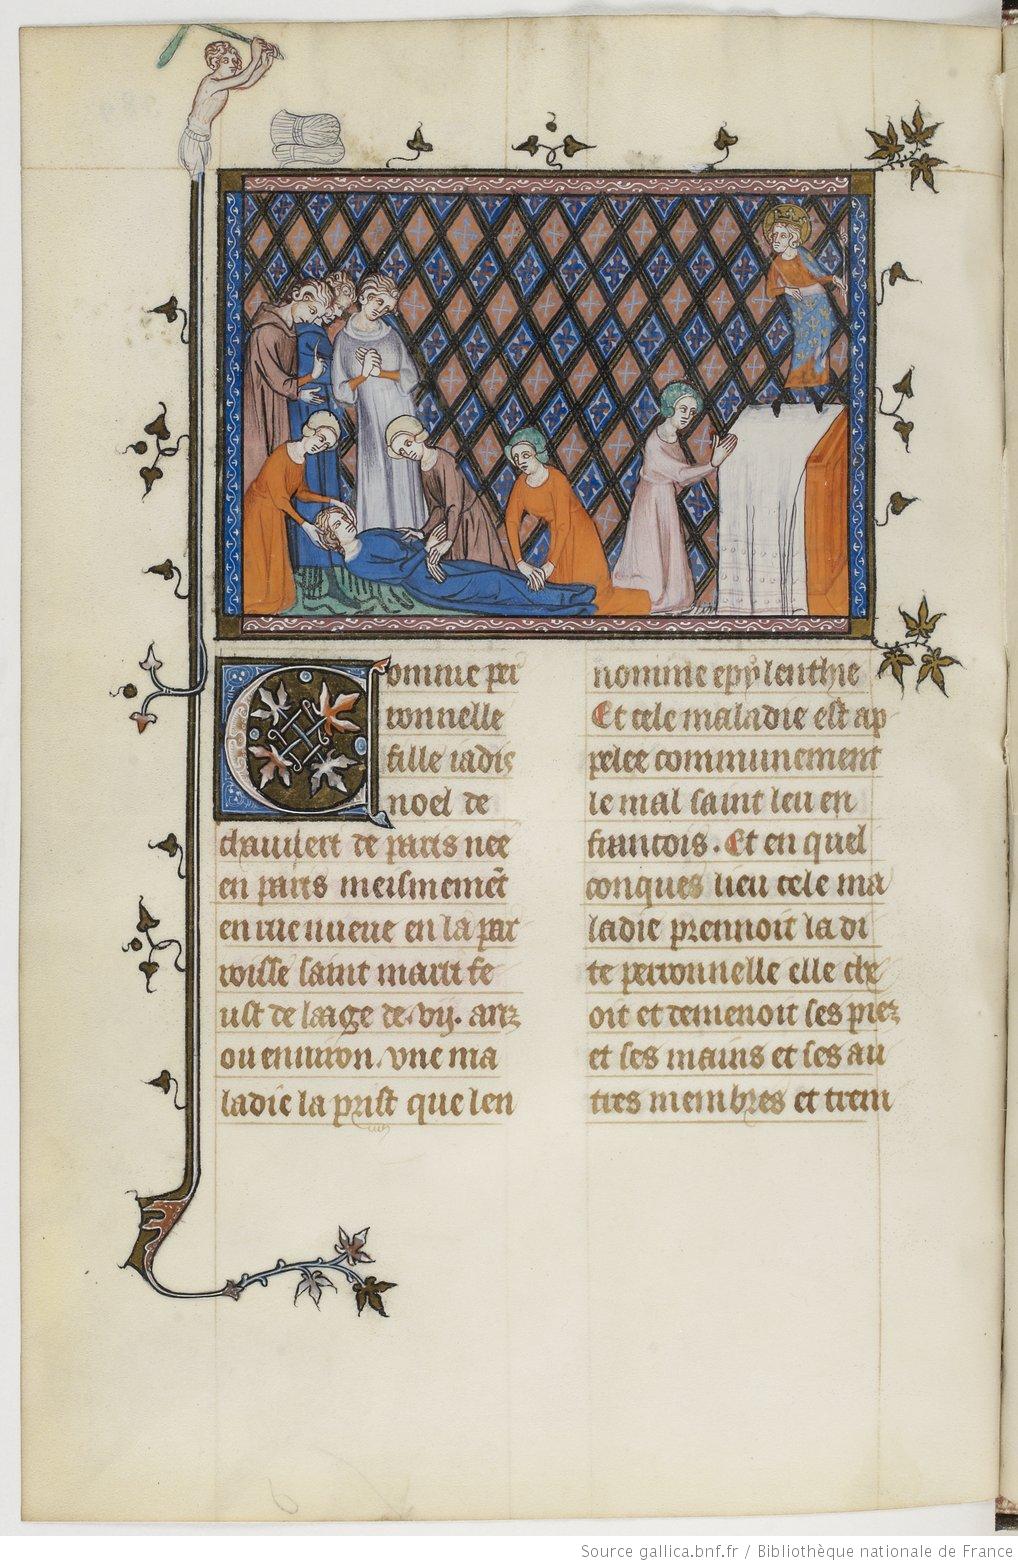 Comme per
ronnelle
fille iadis
noel de
chamlert de paris nee
en paris meismemẽt
en rue nueue en la par
roisse saint marri fe
ust de laage de .vij. anz
ou enuiron. vne ma
ladie la prist que len
nomme epylenthie
Et cele maladie est ap
pelee communement
le mal saint leu en
francois. Et en quel
conques lieu cele ma
ladie prennoit la di
te perronnelle elle che
oit et demenoit ses piez
et ses mains et ses au
tres membres et trem
Source gallica.bnf.fr / Bibliothèque nationale de France